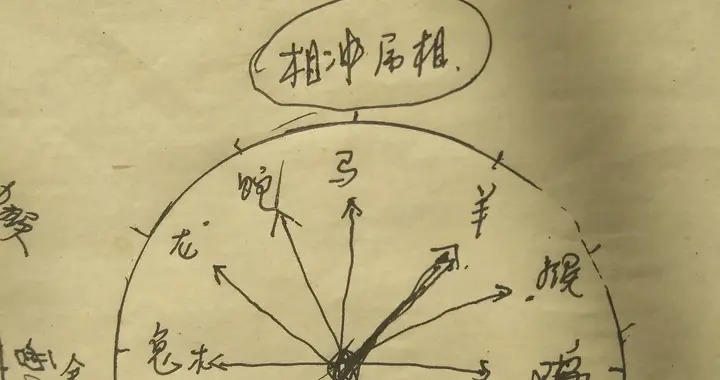 相冲属相
马
蛇
羊
龙
猴
兔
鸡